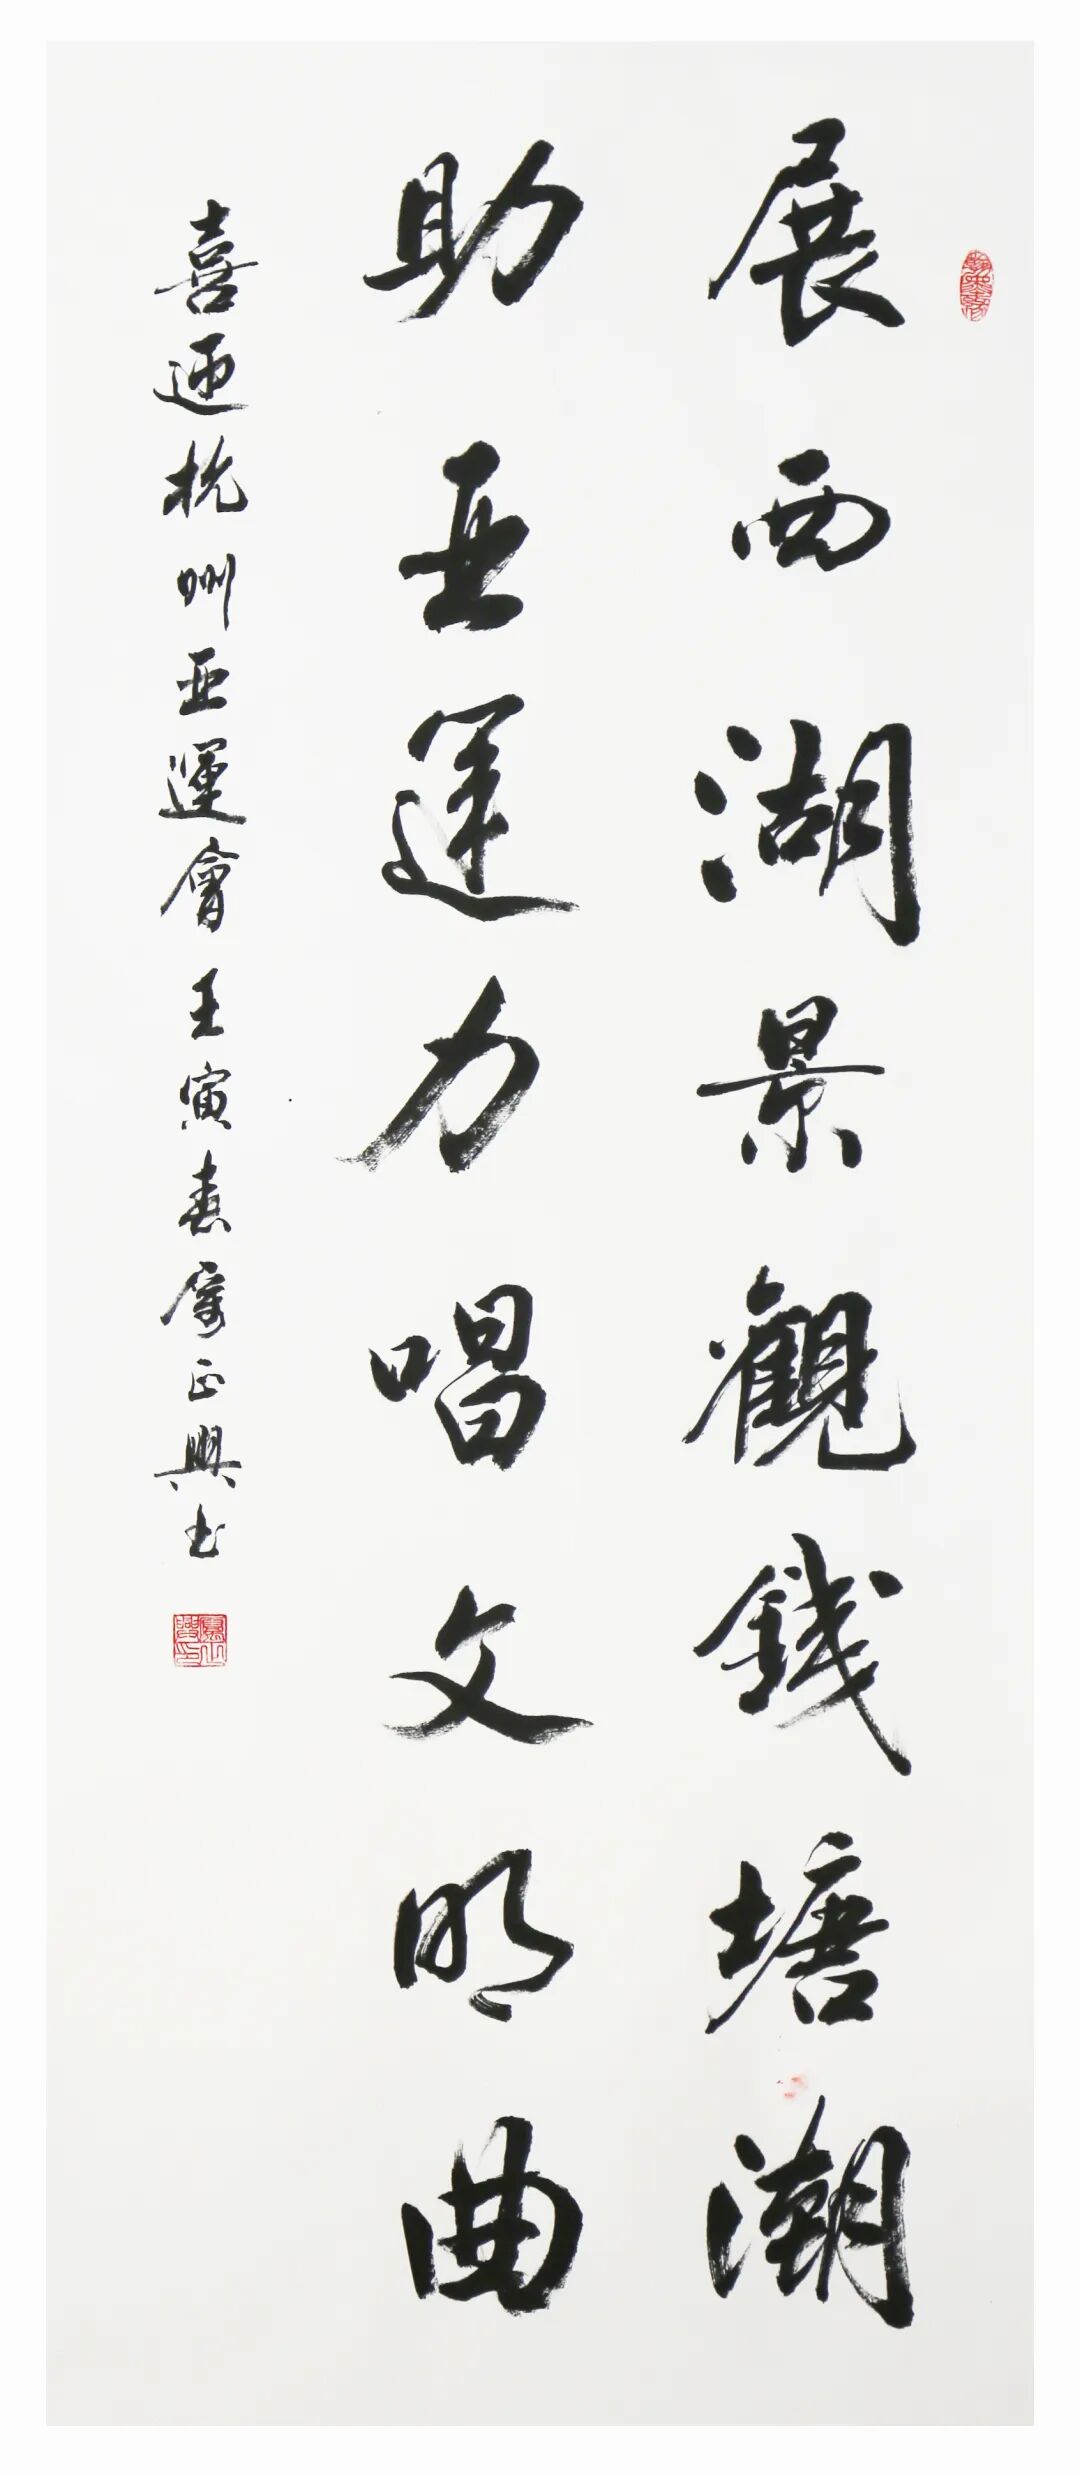 展西湖景觀錢塘潮
助亚運力唱文明曲
喜迎杭州亚運會壬寅春正興书